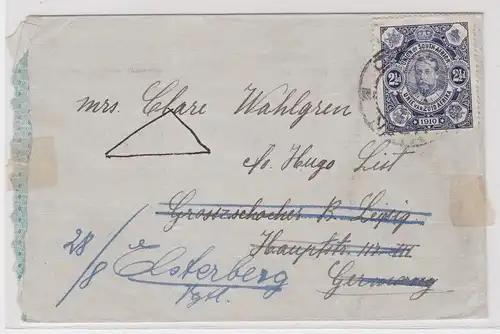 UNION OF SOUTH AFRICA
2½ 2½
UNIE VAN ZUID AFRIKA
1910
Mrs. Clare Wahlgren
c/o. Hugo List
Grosszschocher B. Leipzig
Hauptstr.
Germany
28/8 Elsterberg
Vgtl.